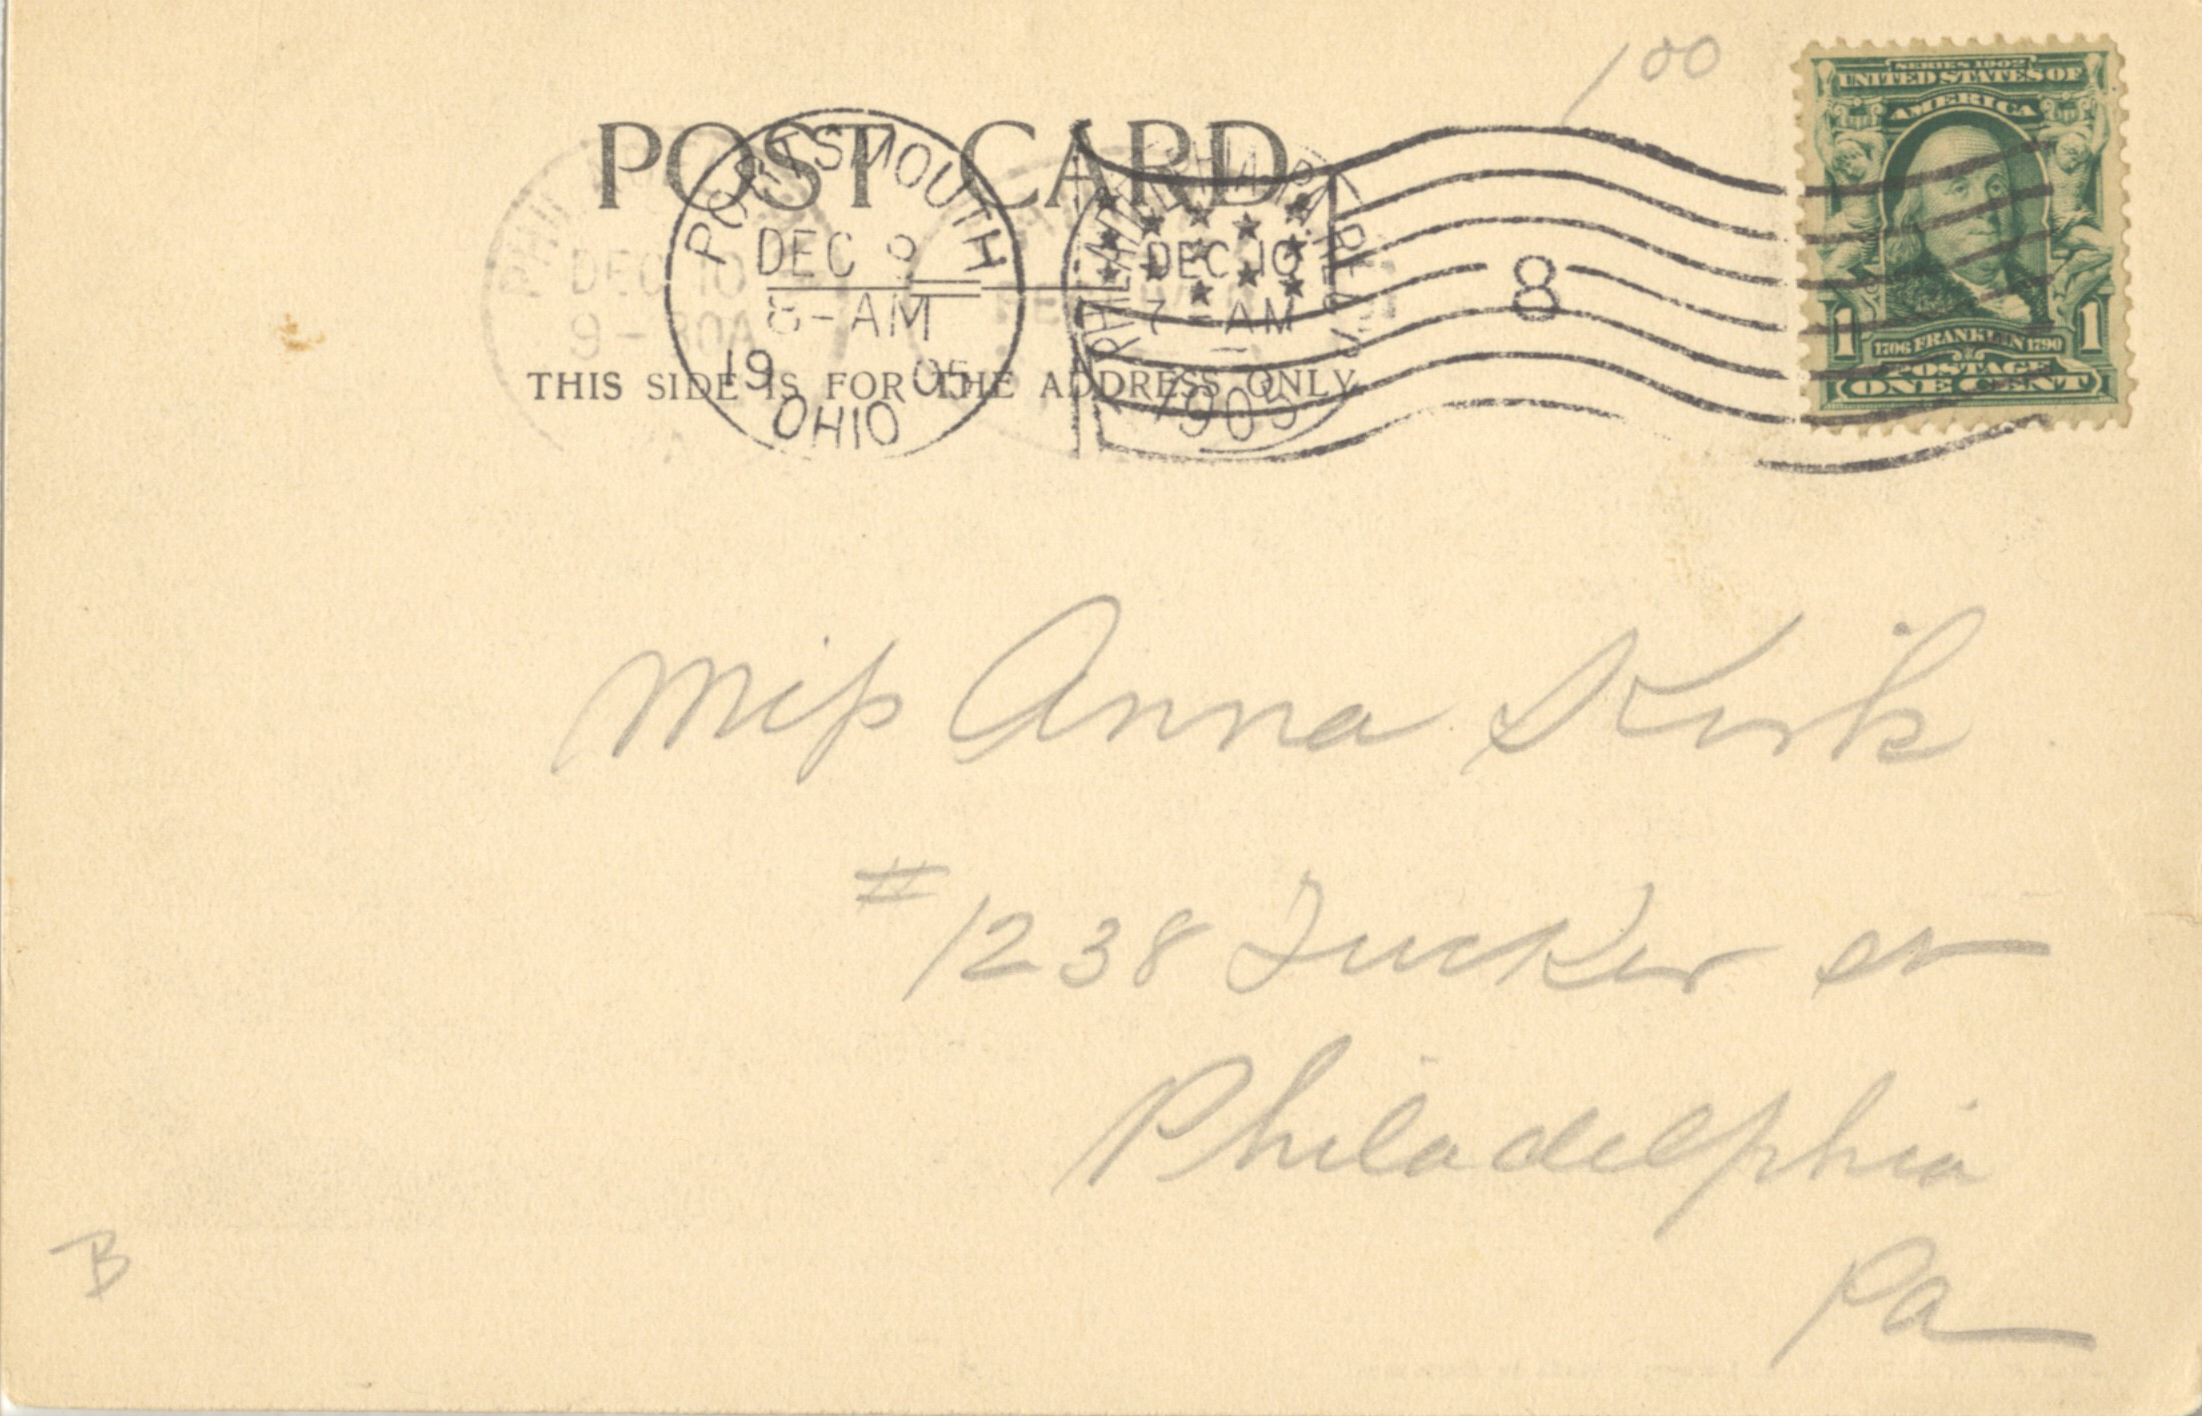 1 00
SERIES 1902
UNITED STATES OF
AMERICA
1706 FRANKLIN 1790
POSTAGE
1 ONE CENT 1
POST CARD
PORTSMOUTH
DEC 9
8-AM
1905
OHIO
DEC 10
9-30A
DEC 10
7-AM
1905
8
THIS SIDE IS FOR THE ADDRESS ONLY
Miss Anna Kirk
#1238 Tucker st
Philadelphia
Pa
B